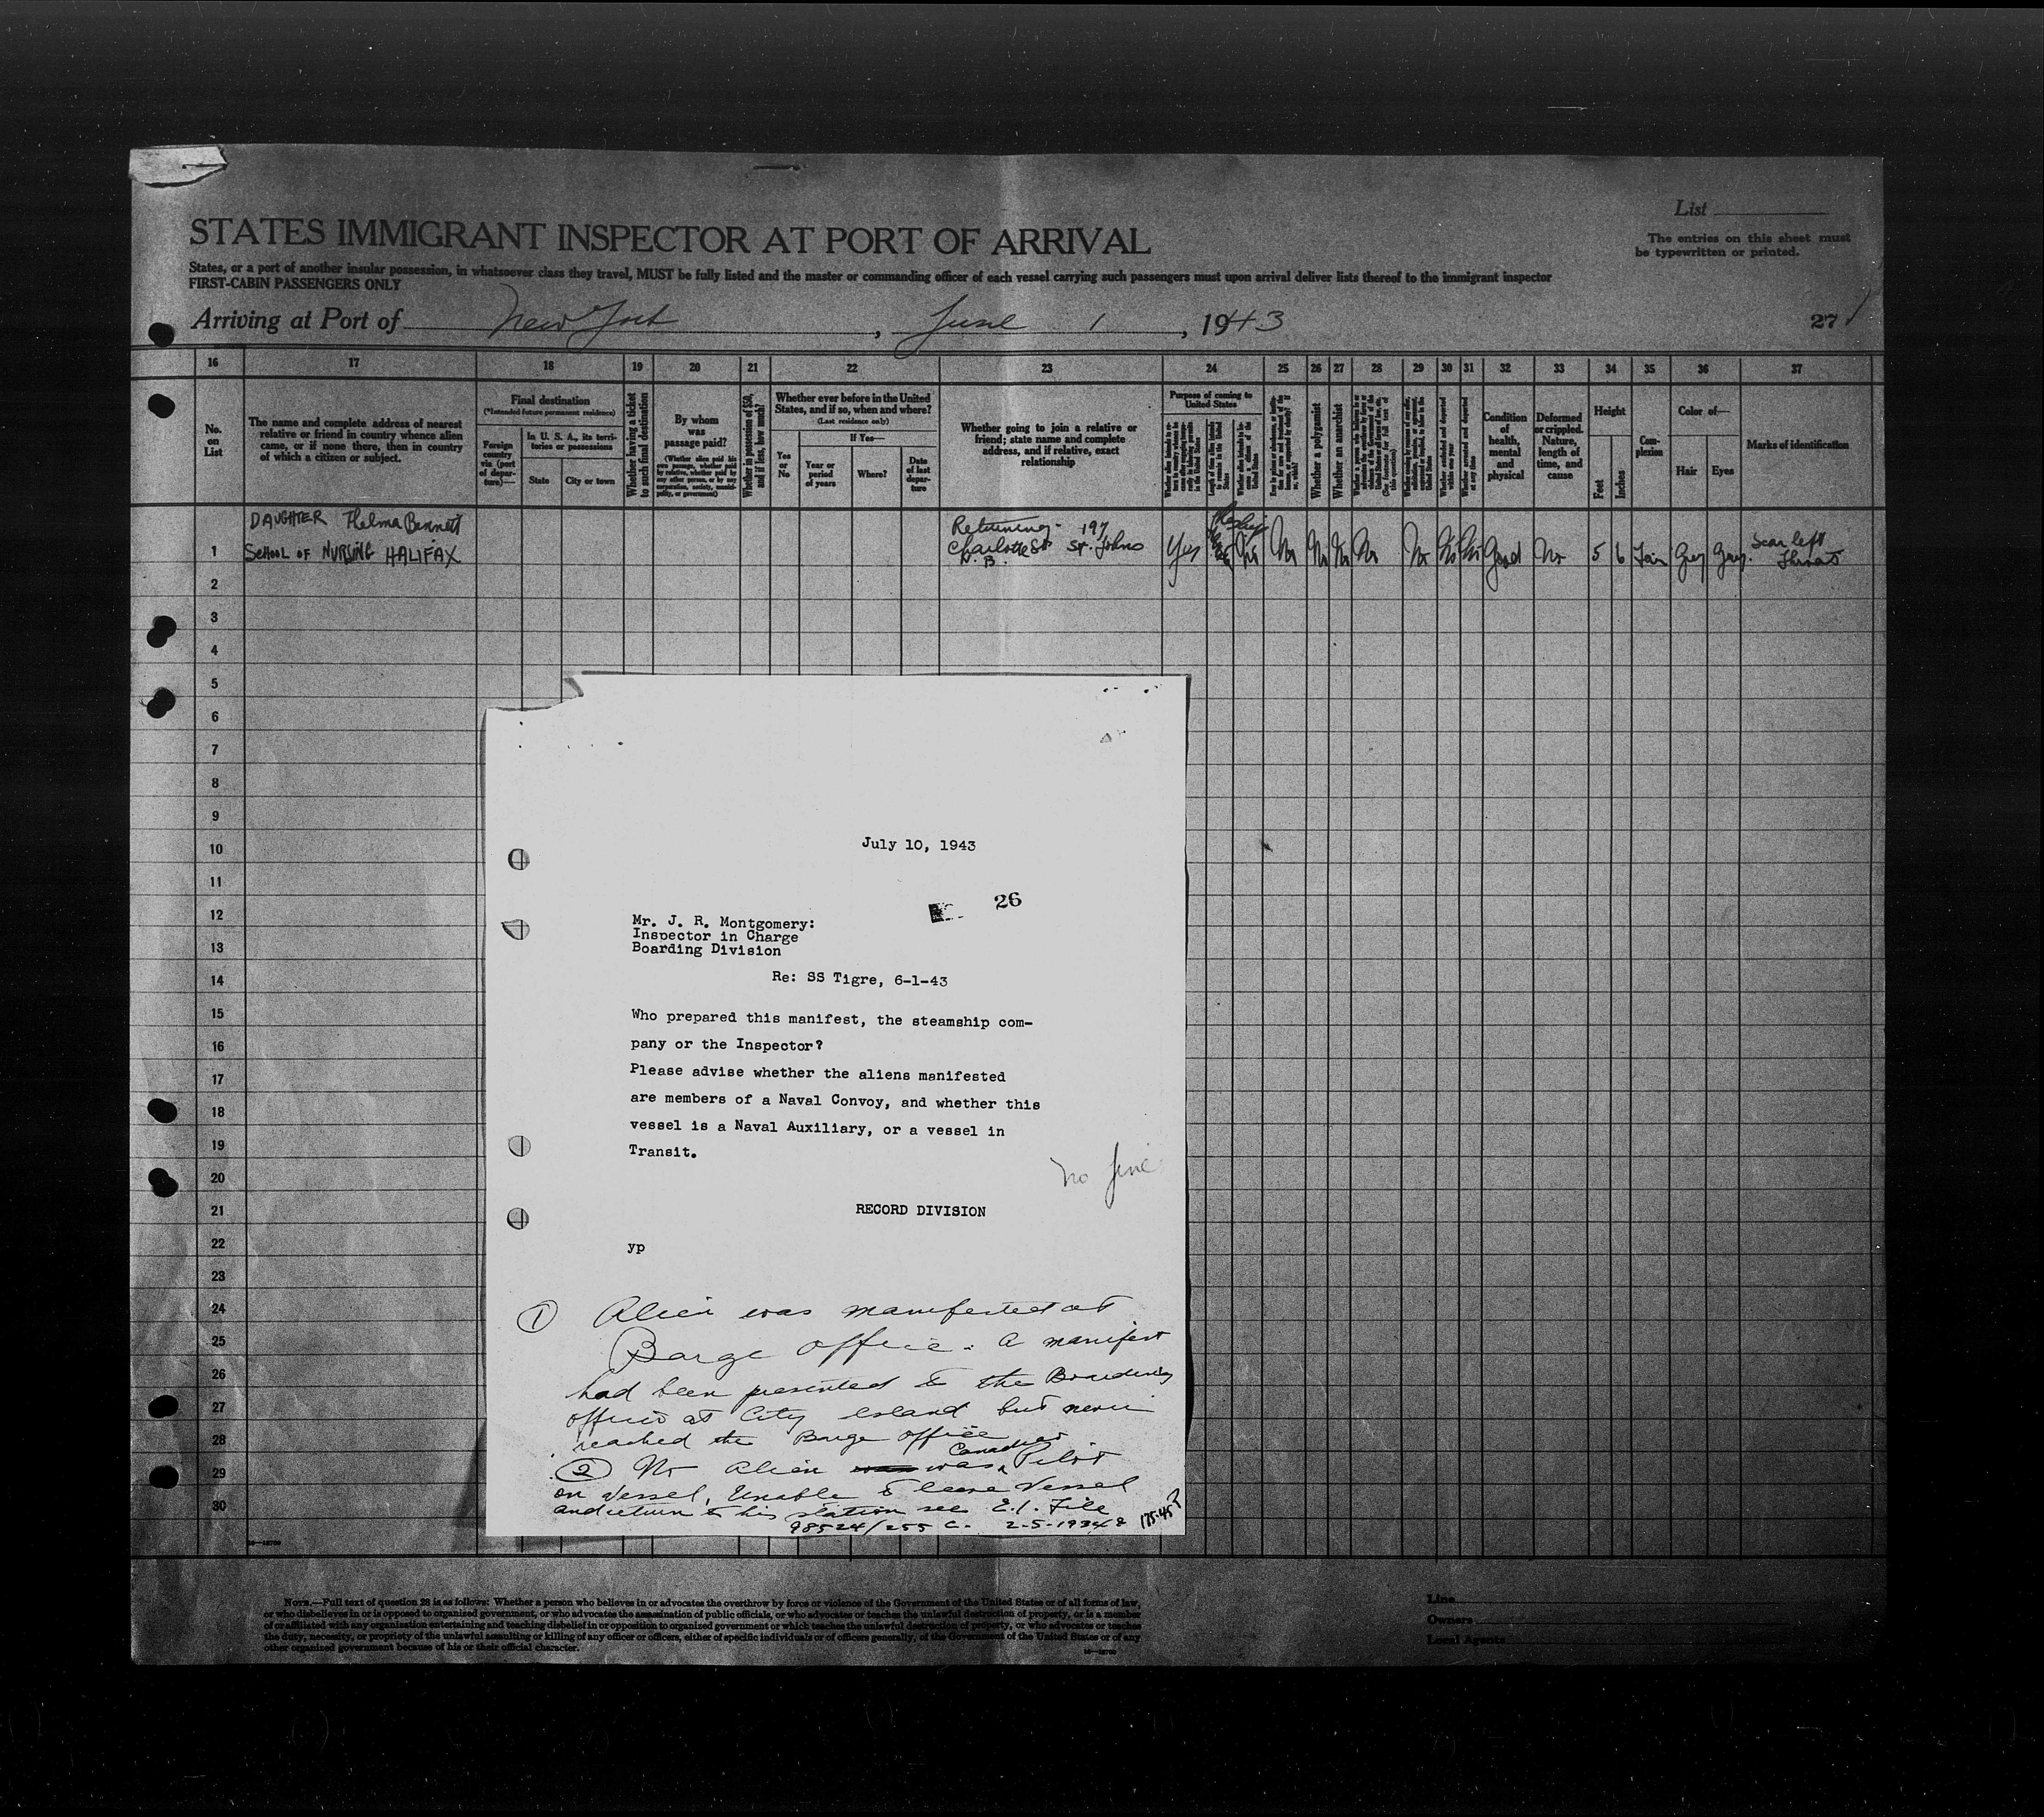 List
STATES IMMIGRANT INSPECTOR AT PORT OF ARRIVAL
The entries on this sheet must
be typewritten or printed.
States, or a port of another insular possession, in whatsoever class they travel, MUST be fully listed and the master or commanding officer of each vessel carrying such passengers must upon arrival deliver lists thereof to the immigrant inspector
FIRST-CABIN PASSENGERS ONLY
Arriving at Port of New York, June 1, 1943
27
16 17 18 19 20 21 22 23 24 25 26 27 28 29 30 31 32 33 34 35 36 37
No.
on
List
The name and complete address of nearest
relative or friend in country whence alien
came, or if none there, then in country
of which a citizen or subject.
Final destination
(*Intended future permanent residence)
Foreign
country
via (port
of depar-
ture)—
In U. S. A., its terri-
tories or possessions
State
City or town
Whether having a ticket
to such final destination
By whom
was
passage paid?
(Whether alien paid his
own passage, whether paid
by relative, whether paid by
any other person, or by any
corporation, society, munici-
pality, or government)
Whether in possession of $50,
and if less, how much?
Whether ever before in the United
States, and if so, when and where?
(Last residence only)
Yes
or
No
If Yes—
Year or
period
of years
Where?
Date
of last
depar-
ture
Whether going to join a relative or
friend; state name and complete
address, and if relative, exact
relationship
Purpose of coming to
United States
Whether a polygamist
Whether an anarchist
Condition
of
health,
mental
and
physical
Deformed
or crippled.
Nature,
length of
time, and
cause
Height
Feet
Inches
Com-
plexion
Color of—
Hair
Eyes
Marks of identification
DAUGHTER Thelma Bennett
1 SCHOOL OF NURSING HALIFAX
Returning- 197
Charlotte St St. Johns
N. B.
Yes No No No No No No No No Good No 5 6 Fair Grey Gray. Scar left
Throat
2
3
4
5
6
7
8
9
10
11
12
13
14
15
16
17
18
19
20
21
22
23
24
25
26
27
28
29
30
July 10, 1943
26
Mr. J. R. Montgomery:
Inspector in Charge
Boarding Division
Re: SS Tigre, 6-1-43
Who prepared this manifest, the steamship com-
pany or the Inspector?
Please advise whether the aliens manifested
are members of a Naval Convoy, and whether this
vessel is a Naval Auxiliary, or a vessel in
Transit.
no fine
RECORD DIVISION
yp
① Alien was manifested at
Barge office. A manifest
had been presented to the Boarding
officer at City Island but never
reached the Barge office
② No Alien was Canadian Pilot
on Vessel, Unable to leave Vessel
and return to his station see E.I. File
98524/255 C.
16—18700
NOTE.—Full text of question 28 is as follows: Whether a person who believes in or advocates the overthrow by force or violence of the Government of the United States or of all forms of law,
or who disbelieves in or is opposed to organized government, or who advocates the assassination of public officials, or who advocates or teaches the unlawful destruction of property, or is a member
of or affiliated with any organization entertaining and teaching disbelief in or opposition to organized government or which teaches the unlawful destruction of property, or who advocates or teaches
the duty, necessity, or propriety of the unlawful assaulting or killing of any officer or officers, either of specific individuals or of officers generally, of the Government of the United States or of any
other organized government because of his or their official character.
16—18700
Line
Owners
Local Agents